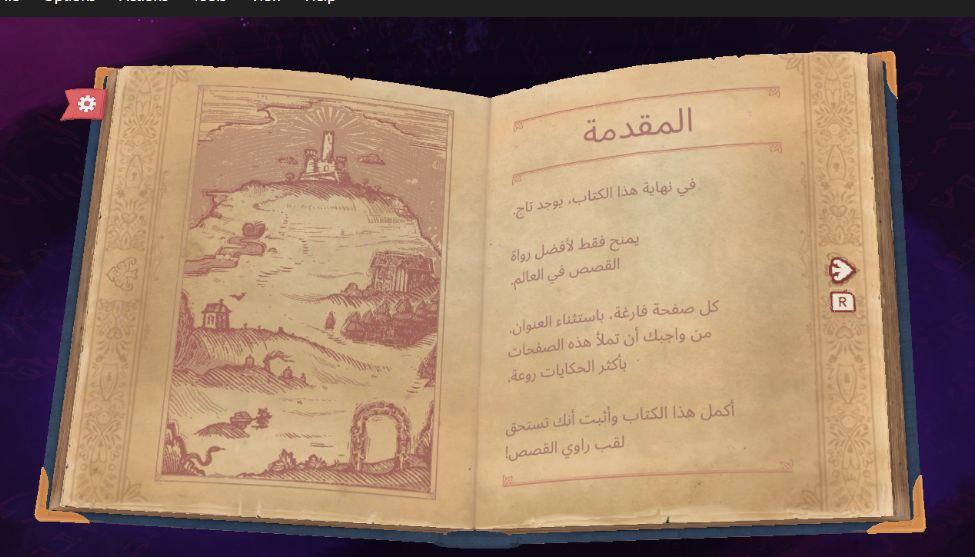 Options
Help
المقدمة
في نهاية هذا الكتاب، يوجد تاج.
يمنح فقط لأفضل رواة
القصص في العالم.
كل صفحة فارغة، باستثناء العنوان.
من واجبك أن تملأ هذه الصفحات
بأكثر الحكايات روعة.
أكمل هذا الكتاب وأثبت أنك تستحق
لقب راوي القصص!
R